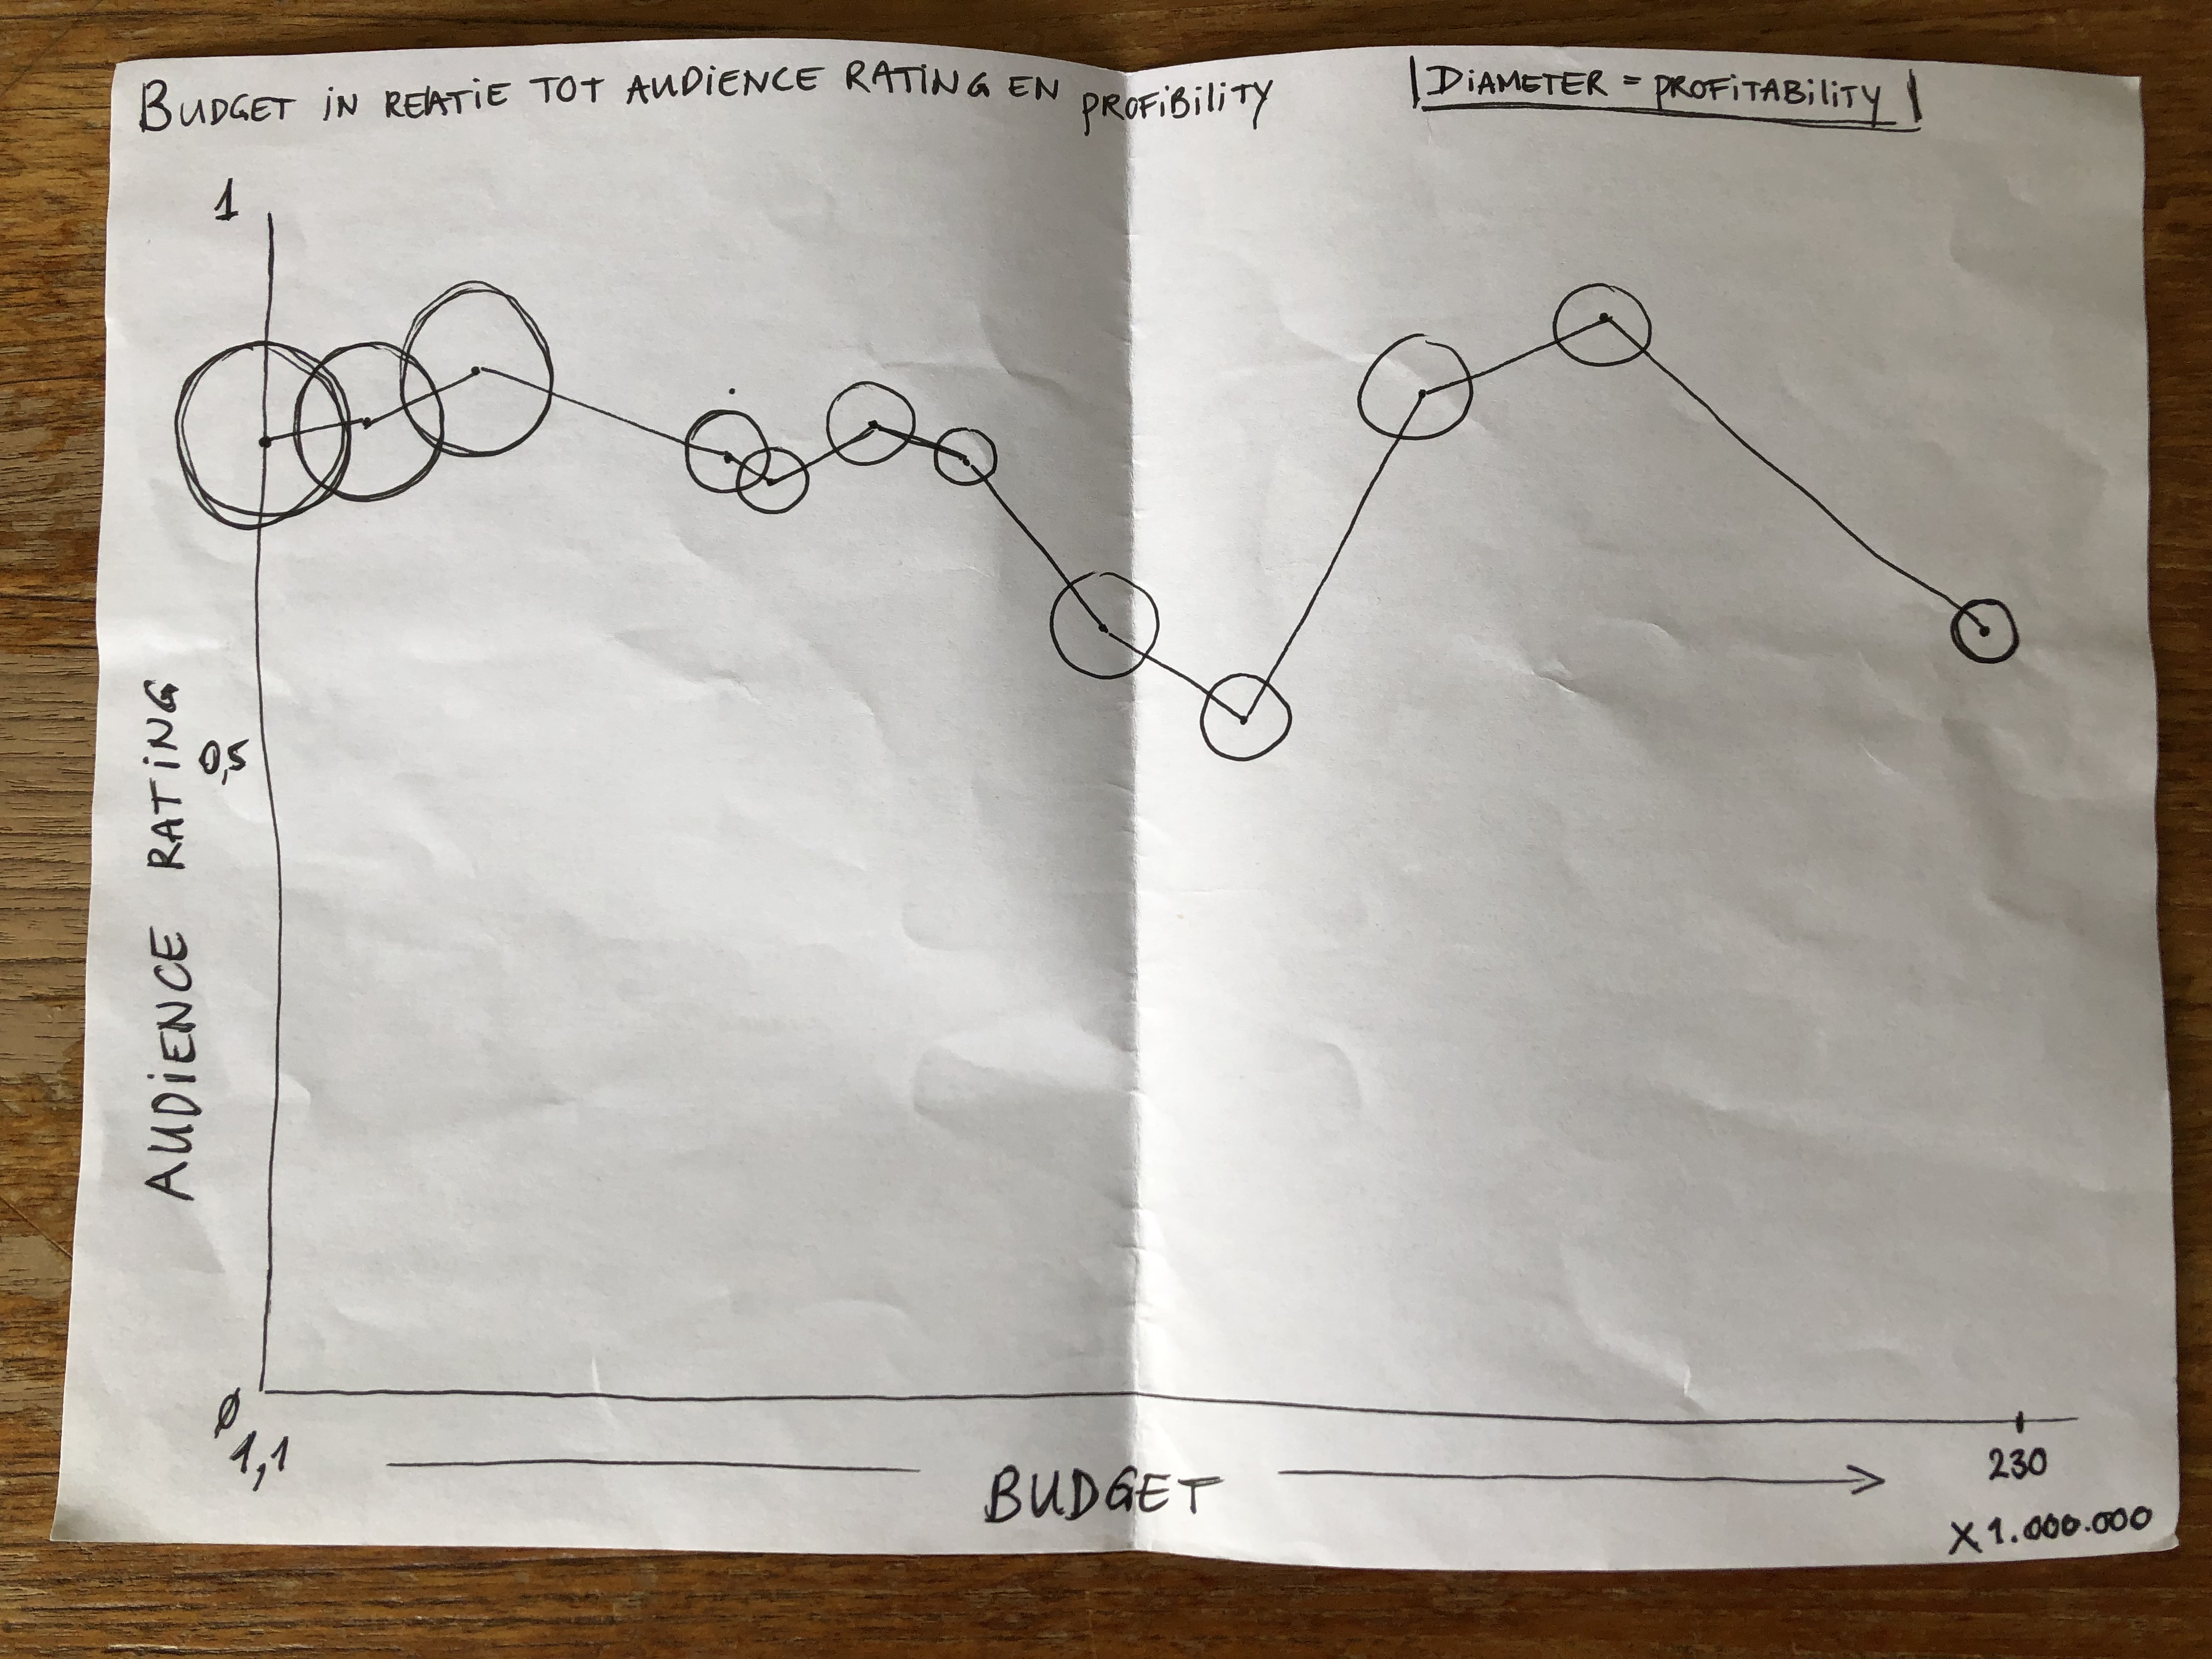 BUDGET iN RELATiE TOT AUDiENCE RATiNG EN PROFiBiLiTY
DiAMETER = PROFiTABiLiTY
1
0,5
AUDiENCE RATiNG
0
1,1
BUDGET
230
X 1.000.000